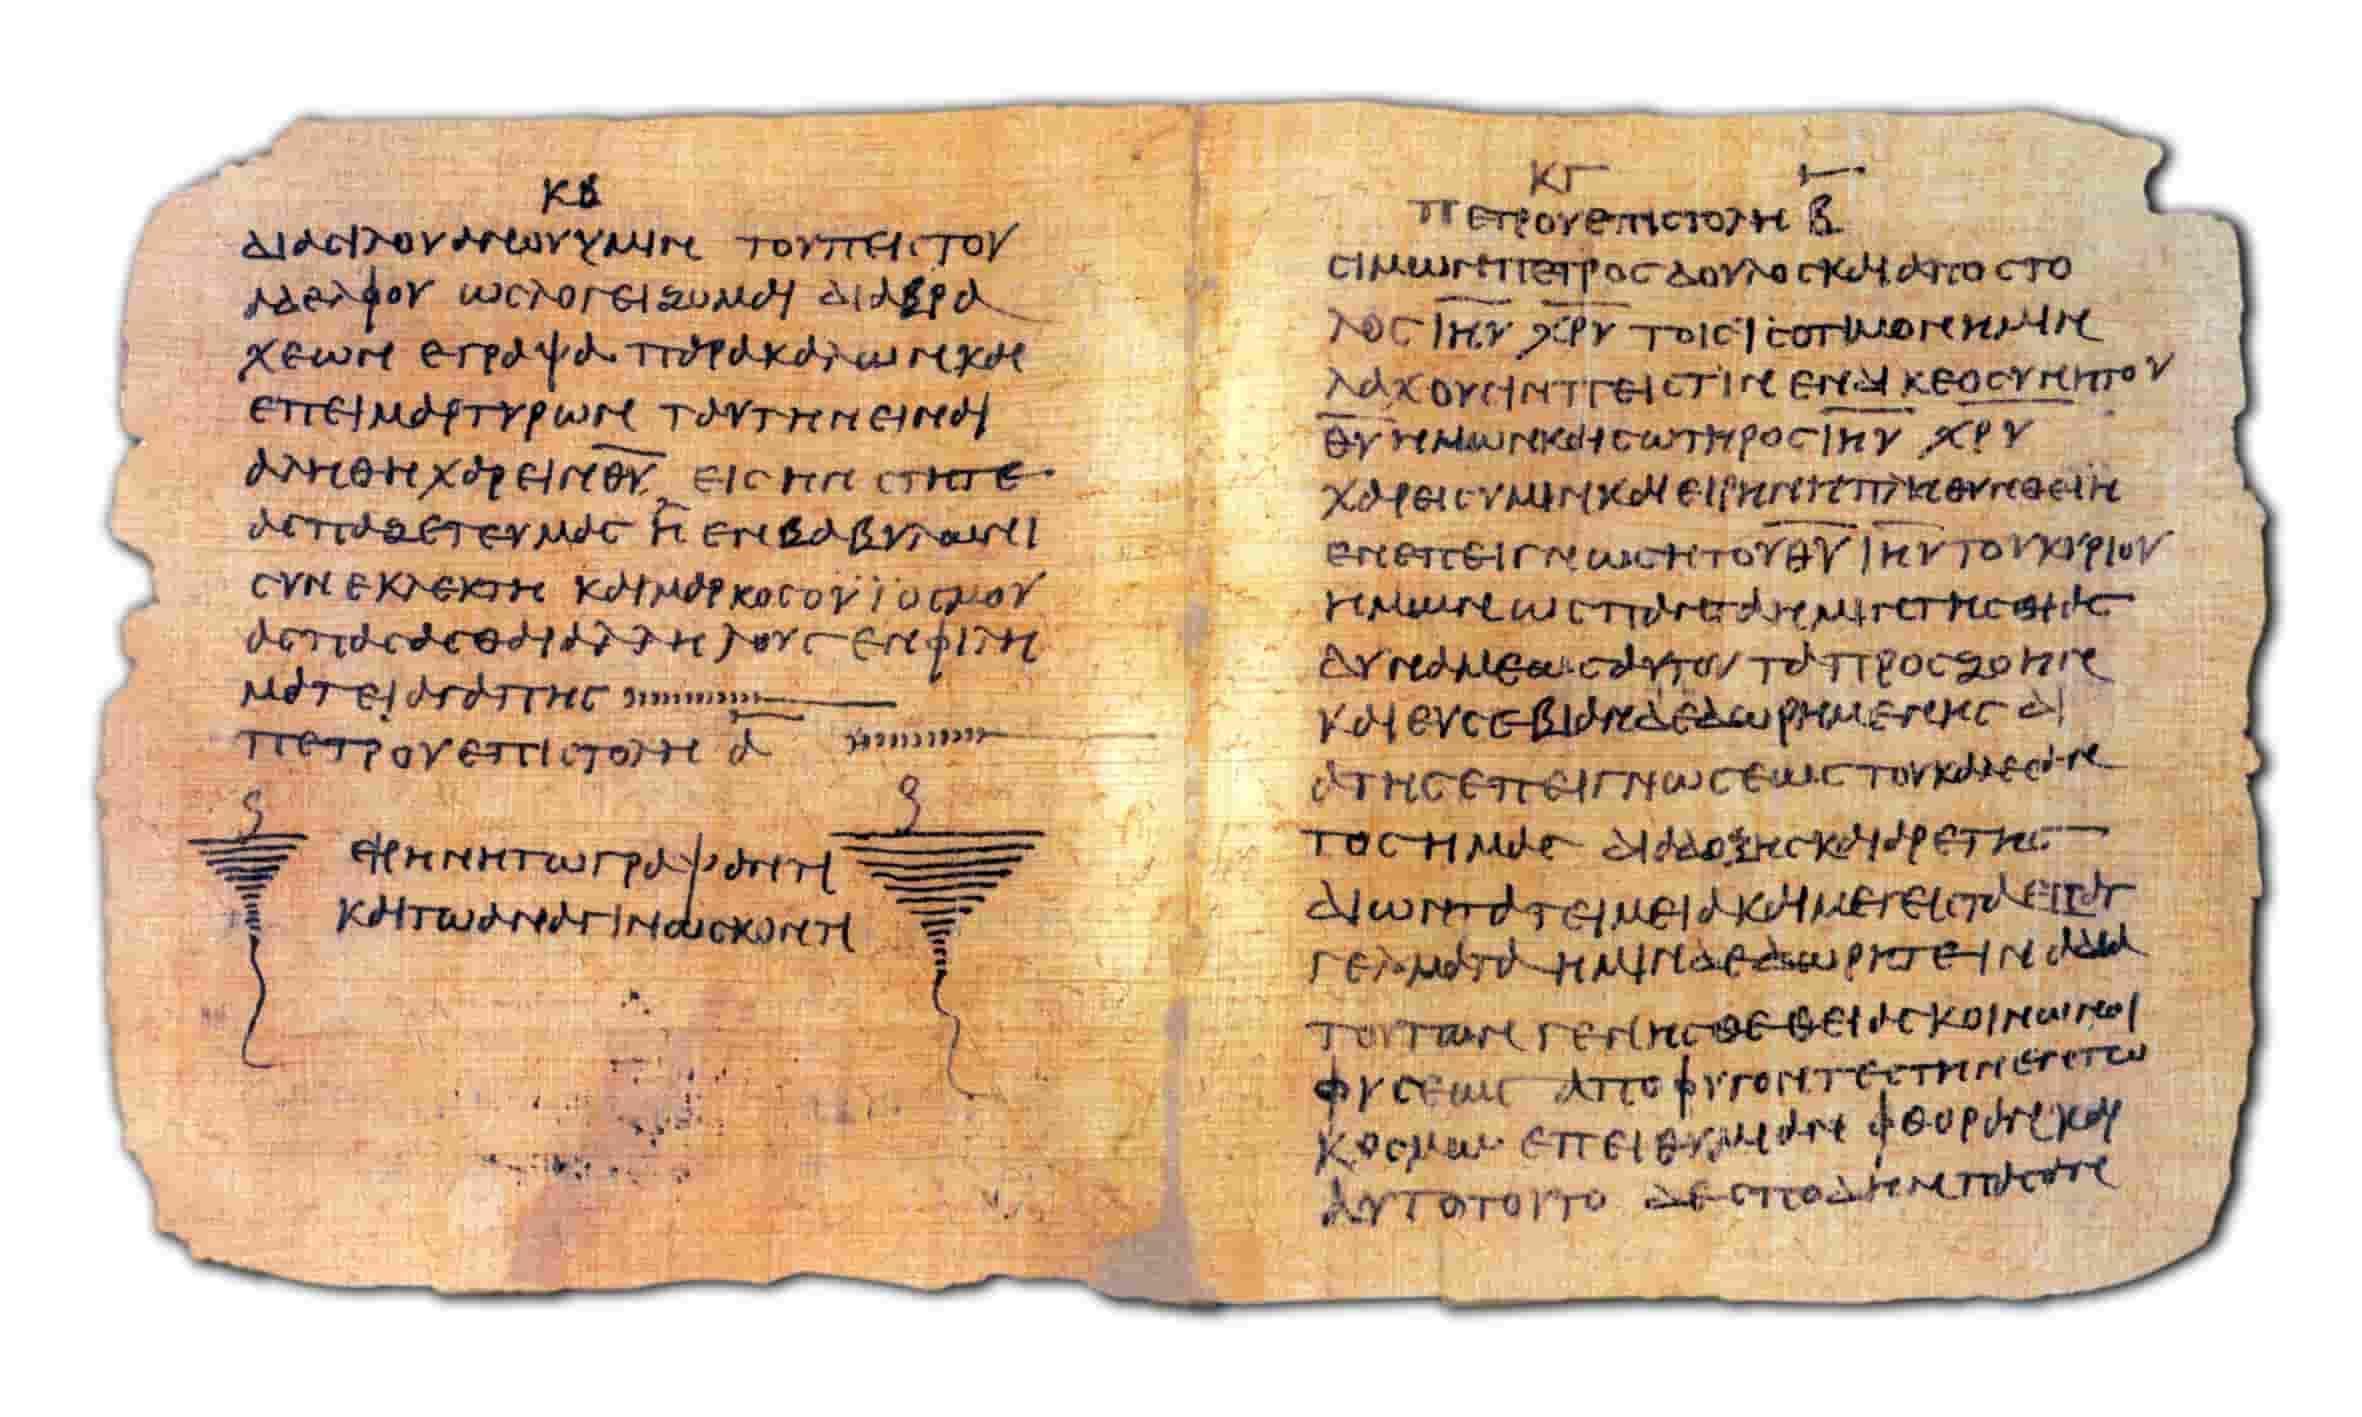 κβ
διαϲιλουανουυμιν τουπειϲτου
αδελφου ωϲλογειζομαι διαβρα
χεων εγραψα παρακαλων και
επειμαρτυρων ταυτην ειναι
αληθηχαρεινθ̅υ̅ ειϲ ην ϲτητε
αϲπαζετευμαϲ η ενβαβυλωνι
ϲυνεκλεκτη καιμαρκοϲουϊοϲμου
αϲπαϲαϲθαιαλληλουϲ ενφιλη
ματει αγαπηϲ
πετρουεπιϲτολη α̅
ειρηνητωγραψαντι
καιτωαναγινωϲκοντι
κγ
πετρουεπιϲτολη β̅
ϲιμωνπετροϲδουλοϲκαιαποϲτο
λοϲ ι̅η̅υ̅ χ̅ρ̅υ̅ τοιϲιϲοτιμονημιν
λαχουϲινπειϲτινενδικεοϲυνητου
θ̅υ̅ημωνκαιϲωτηροϲι̅η̅υ̅ χ̅ρ̅υ̅
χαρειϲυμινκαιειρηνηπληθυνθειη
ενεπειγνωϲητουθ̅υ̅ ι̅η̅υ̅ τουκυριου
ημων ωϲπανταημιντηϲθιαϲ
δυναμεωϲαυτου ταπροϲζοην
καιευϲεβιανδεδωρημενηϲ δι
ατηϲεπειγνωϲεωϲ τουκαλεϲαν
τοϲημαϲ διαδοξηϲκαιαρετηϲ
διωντατειμειακαιμεγειϲταεπαγ
γελματα ημινδεδωρητειναδια
τουτων γενηϲθεθειαϲκοινωνοι
φυϲεωϲ αποφυγοντεϲτηνεντω
κοϲμω επειθυμιαν φθορανκαι
αυτοτουτο δεϲποδηνπαϲαν